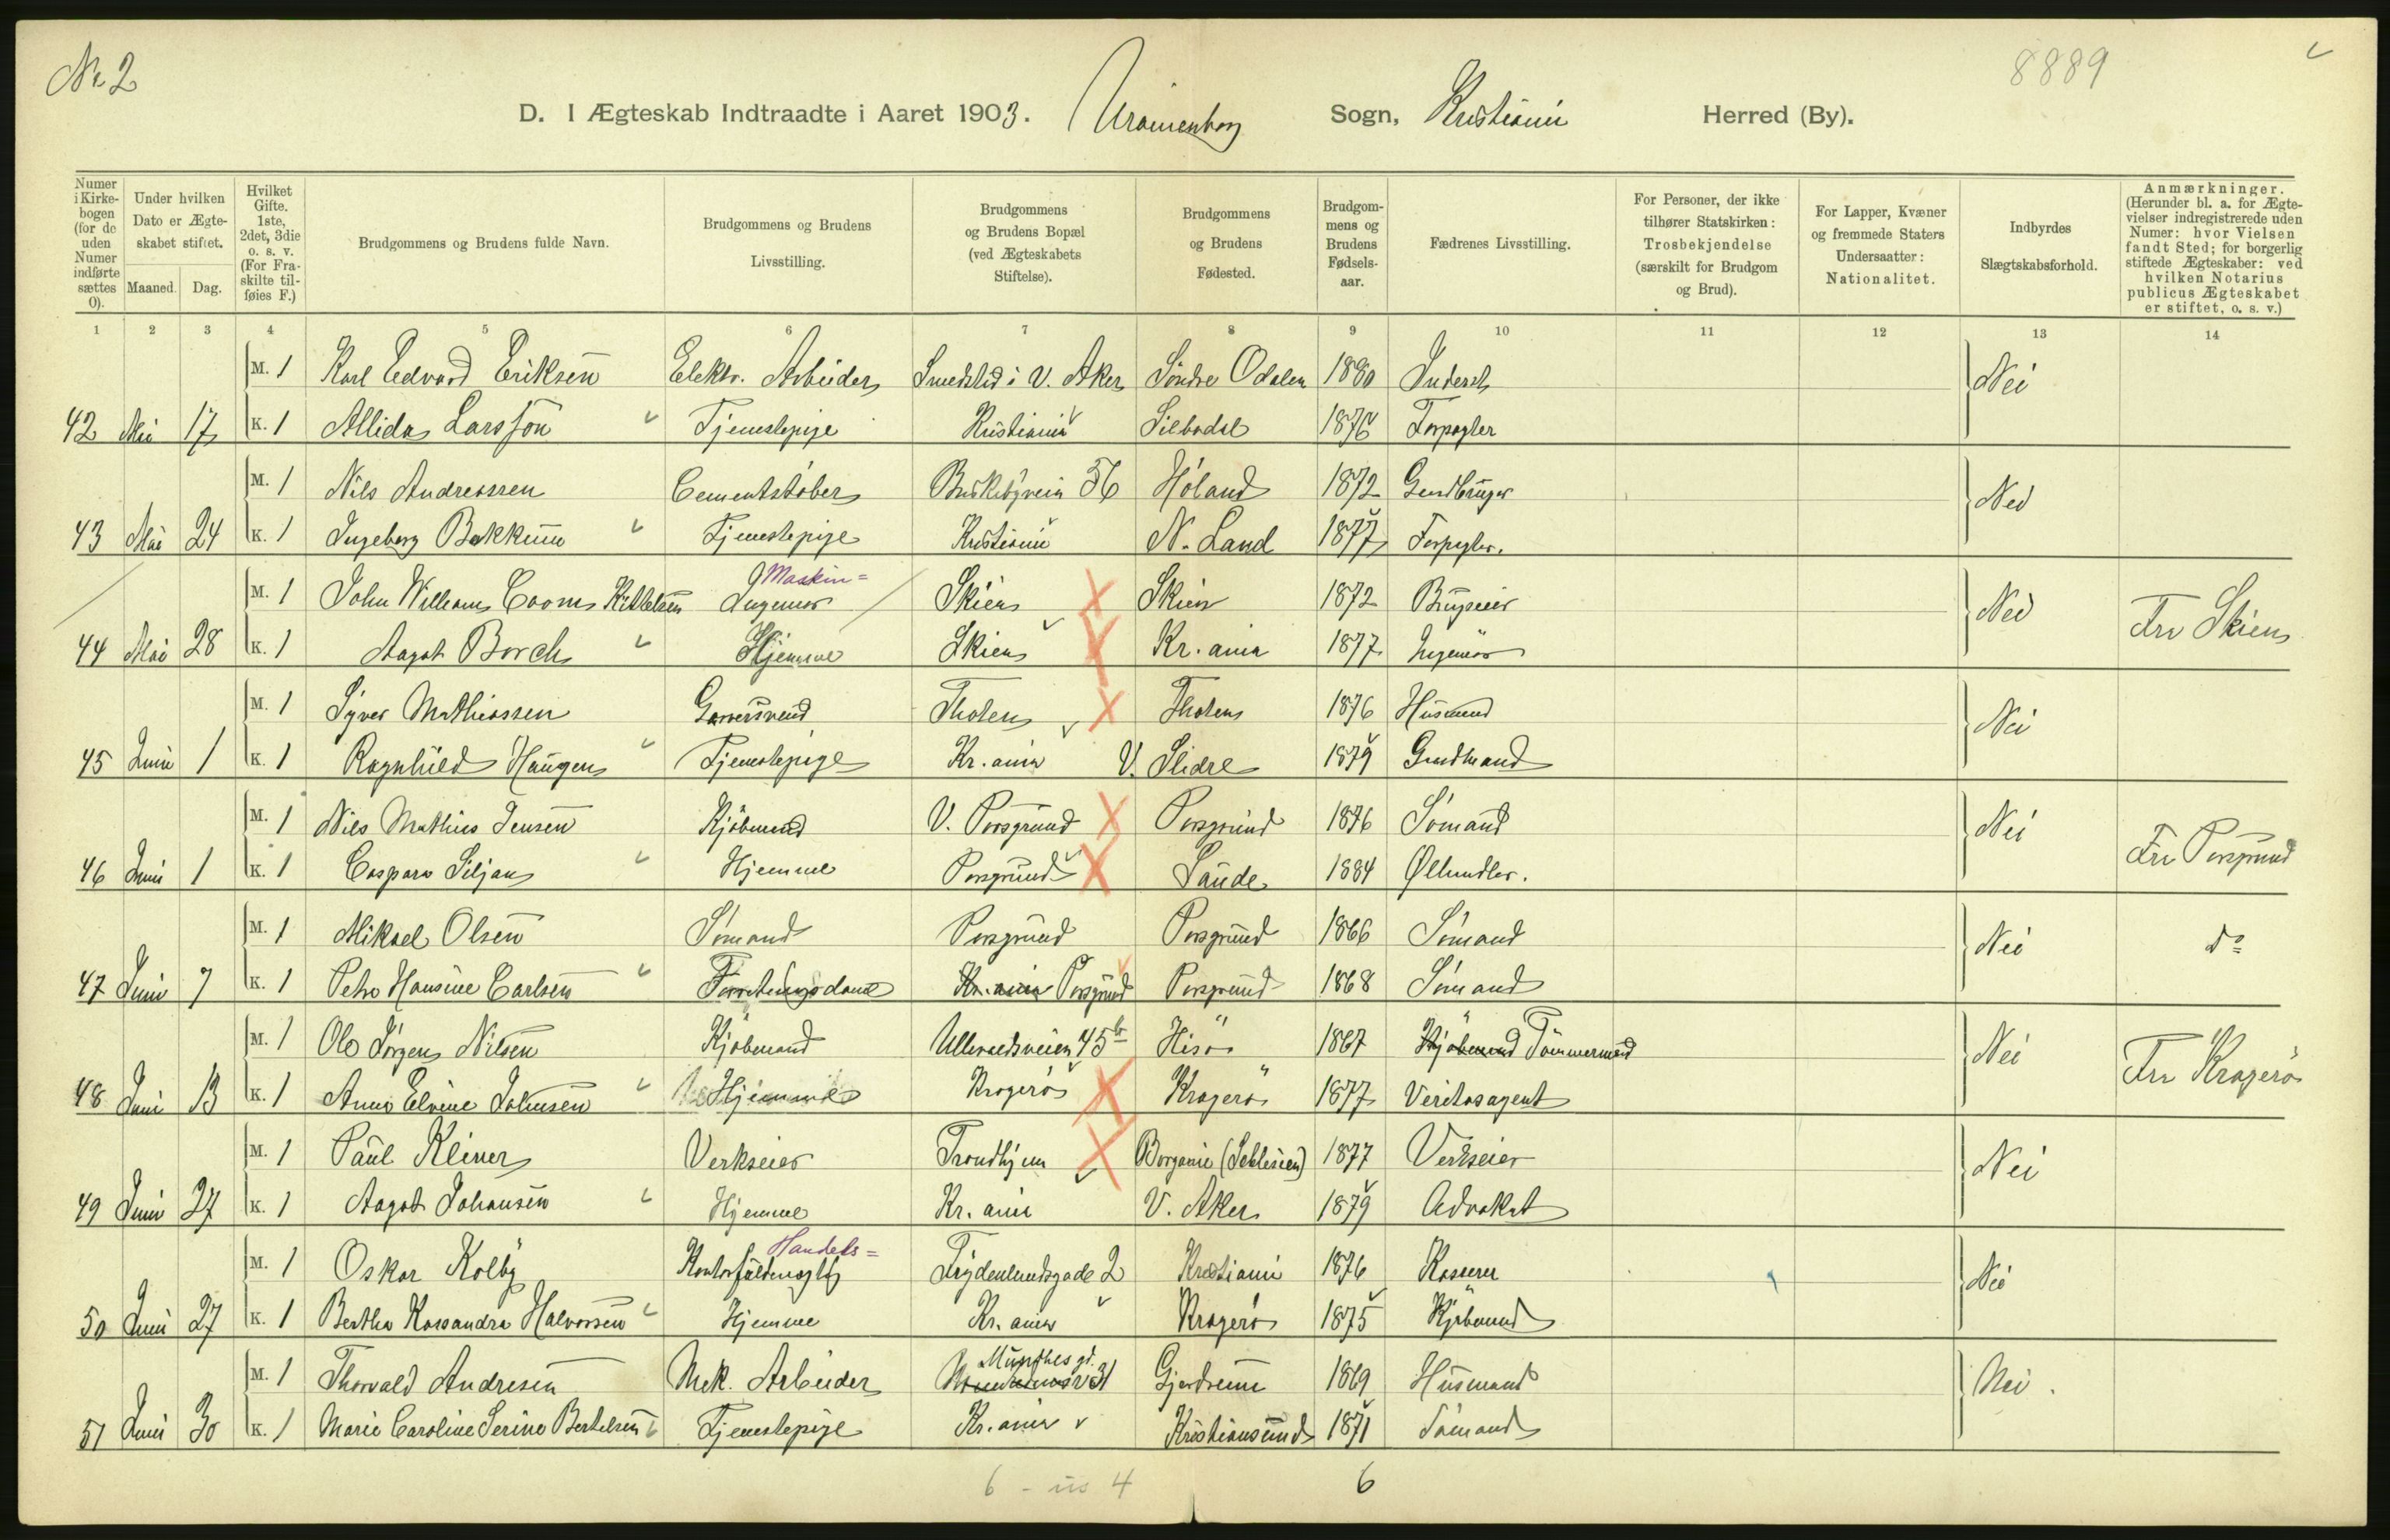 No 2
8889
D. I Ægteskab Indtraadte i Aaret 1903. Uranienborg Sogn, Kristiania Herred (By).
Numer i Kirkebogen (for de uden Numer indførte sættes 0).
Under hvilken Dato er Ægteskabet stiftet.
Maaned. Dag.
Hvilket Gifte. 1ste, 2det, 3die o. s. v. (For Fraskilte tilføies F.)
Brudgommens og Brudens fulde Navn.
Brudgommens og Brudens Livsstilling.
Brudgommens og Brudens Bopæl (ved Ægteskabets Stiftelse).
Brudgommens og Brudens Fødested.
Brudgommens og Brudens Fødselsaar.
Fædrenes Livsstilling.
For Personer, der ikke tilhører Statskirken: Trosbekjendelse (særskilt for Brudgom og Brud).
For Lapper, Kvæner og fremmede Staters Undersaatter: Nationalitet.
Indbyrdes Slægtskabsforhold.
Anmærkninger. (Herunder bl. a. for Ægtevielser indregistrerede uden Numer: hvor Vielsen fandt Sted; for borgerlig stiftede Ægteskaber: ved hvilken Notarius publicus Ægteskabet er stiftet, o. s. v.)
1 2 3 4 5 6 7 8 9 10 11 12 13 14
M. 1 Karl Edvard Eriksen Elektr. Arbeider Smedstad i V. Aker Söndre Odalen 1880 Inderst Nei
42 Mai 17 K. 1 Allida Larsson Tjenestepige Kristiania Silbodal 1876 Forpagter
M. 1 Nils Andreassen Cementstøber Briskebyveien 56 Höland 1872 Gaardbruger Nei
43 Mai 24 K. 1 Ingeborg Bakkum Tjenestepige Kristiania N. Land 1877 Forpagter.
M. 1 John William Coom Kittelsen Maskin= Ingeniør Skien Skien 1872 Brugseier Nei Fra Skien
44 Mai 28 K. 1 Aagot Borch Hjemme Skien Kr.ania 1877 Ingeniør
M. 1 Syver Mathiassen Garversvend Thoten Thoten 1876 Husmand Nei
45 Juni 1 K. 1 Ragnhild Haugen Tjenestepige Kr.ania V. Slidre 1879 Gaardmand
M. 1 Nils Mathias Jensen Kjøbmand V. Porsgrund Porsgrund 1876 Sømand Nei Fra Porsgrund
46 Juni 1 K. 1 Caspara Siljan Hjemme Porsgrund Saude 1884 Ølhandler.
M. 1 Mikael Olsen Sømand Porsgrund Porsgrund 1866 Sømand Nei do
47 Juni 7 K. 1 Petra Hansine Carlsen Forretningsdame Kr.ania Porsgrund Porsgrund 1868 Sømand
M. 1 Ole Jörgen Nilsen Kjøbmand Ullevaalsveien 45b Hisö 1867 Kjøbmand Tømmermand Nei Fra Kragerö
48 Juni 13 K. 1 Anna Elvine Johnsen Hjemme Kragerö Kragerö 1877 Veritasagent
M. 1 Paul Kleiner Verkseier Trondhjem Borganie (Schlesien) 1877 Verkseier Nei
49 Juni 27 K. 1 Aagot Johansen Hjemme Kr.ania V. Aker 1879 Advokat
M. 1 Oskar Kolby Handels= Kontorfuldmægtig Frydenlundsgade 2 Kristiania 1876 Kasserer Nei
50 Juni 27 K. 1 Bertha Kassandra Halvorsen Hjemme Kr.ania Kragerö 1875 Kjøbmand
M. 1 Thorvald Andresen Mek. Arbeider Munthes gd. 31 Gjerdrum 1869 Husmand Nei.
51 Juni 30 K. 1 Marie Caroline Serine Bertelsen Tjenestepige Kr.ania Kristiansund 1871 Sømand
6 - 4
6